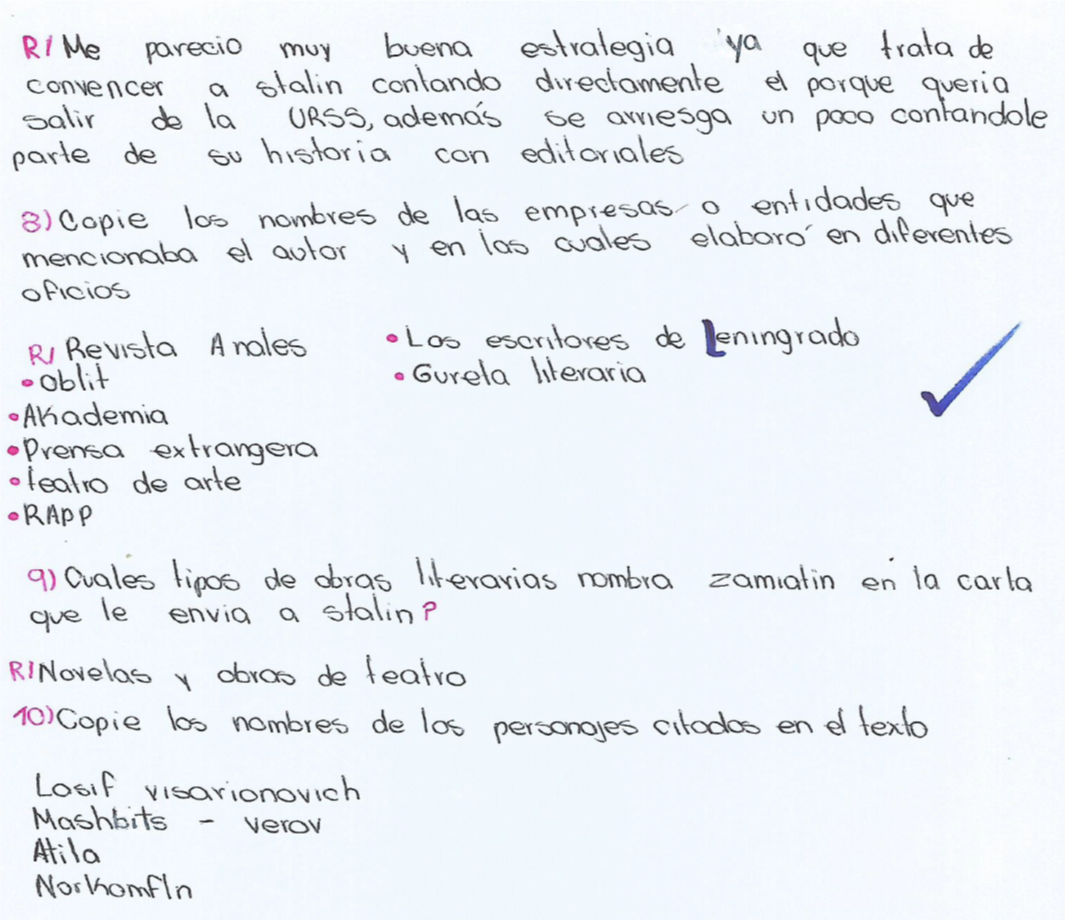 R/ Me parecio muy buena estralegia ya que trata de
convencer a stalin contando directamente el porque queria
salir de la URSS, además se arriesga un poco contandole
parte de su historia con editoriales
8) Copie los nombres de las empresas o entidades que
mencionaba el autor y en las cuales elaboró en diferentes
oficios
R/ Revista Anales
•Oblit
•AKademia
•Prensa extrangera
•teatro de arte
•RAPP
•Los escritores de Leningrado
•Gurela literaria
9) Cuales tipos de obras literarias nombra zamiatin en la carta
que le envia a stalin?
R/ Novelas y obras de teatro
10) Copie los nombres de los personajes citados en el texto
Losif visarionovich
Mashbits - verov
Atila
Norkomfln